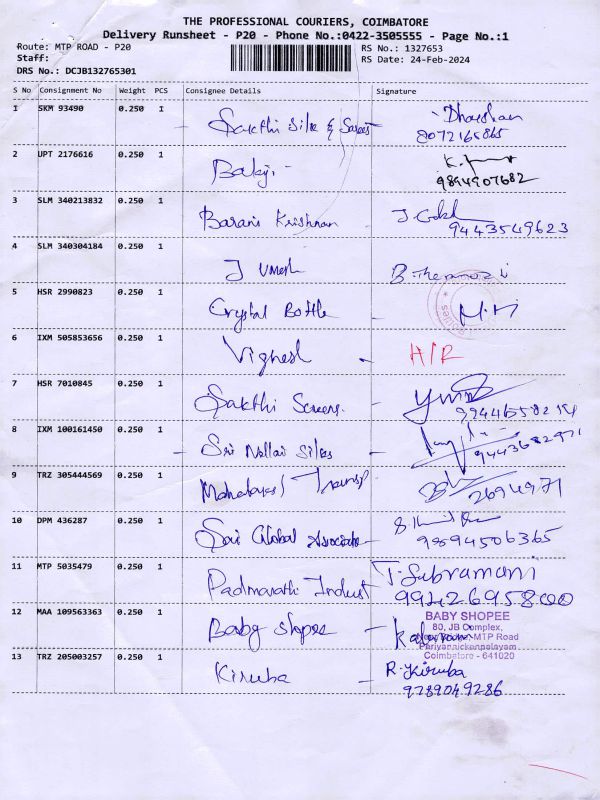 THE PROFESSIONAL COURIERS, COIMBATORE
Delivery Runsheet - P20 - Phone No.:0422-3505555 - Page No.:1
Route: MTP ROAD - P20
RS No.: 1327653
Staff:
RS Date: 24-Feb-2024
DRS No.: DCJB132765301
S No Consignment No Weight PCS Consignee Details Signature
1 SKM 93490 0.250 1 Sakthi Silk & Sarees - Dharshan
8072165865
2 UPT 2176616 0.250 1 Balaji -
9894907682
3 SLM 340213832 0.250 1 Barani Krishnan
9443549623
4 SLM 340304184 0.250 1 J Umesh
5 HSR 2990823 0.250 1 Crystal Bottle -
6 IXM 505853656 0.250 1 Vignesh - H/R
7 HSR 7010845 0.250 1 Sakthi Screens.
8 IXM 100161450 0.250 1 - Sri Nellai Silks
9443682971
9 TRZ 305444569 0.250 1
2694971
10 DPM 436287 0.250 1 Sai Global Associate
11 MTP 5035479 0.250 1 Padmavathi Indust T. Subramani
9942695800
12 MAA 109563363 0.250 1 Baby Shopee -
BABY SHOPEE
80, JB Complex,
MTP Road
Periyannickenpalayam
Coimbatore - 641020
13 TRZ 205003257 0.250 1 Kiruba R. Kiruba
9789049286